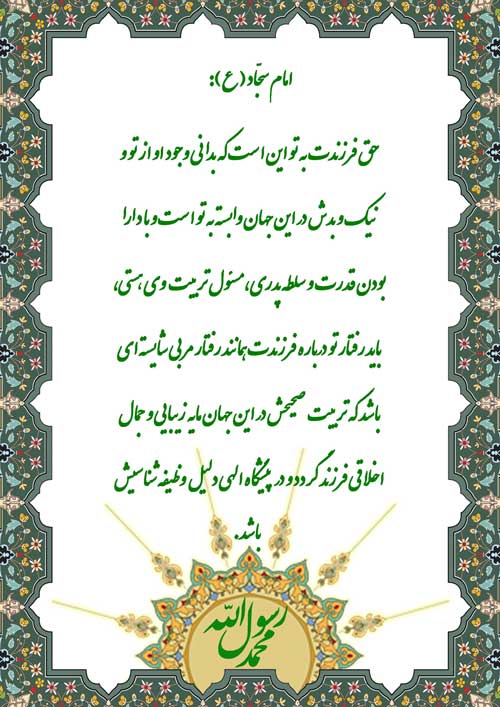 امام سجّاد (ع):
حق فرزندت به تو این است که بدانی وجود او از تو و
نیک و بدش در این جهان وابسته به تو است و با دارا
بودن قدرت و سلطه پدری، مسئول تربیت وی هستی،
باید رفتار تو درباره فرزندت همانند رفتار مربی شایسته ای
باشد که تربیت صحیحش در این جهان مایه زیبایی و جمال
اخلاقی فرزند گردد و در پیشگاه الهی دلیل وظیفه شناسیش
باشد.
محمد رسول الله